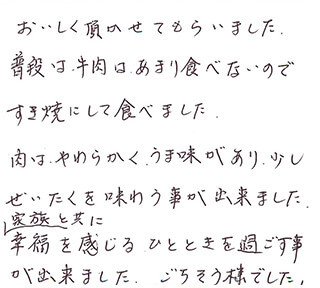 おいしく頂かせてもらいました.
普段は、牛肉は、あまり食べないので
すき焼にして食べました.
肉は、やわらかく、うま味があり、少し
ぜいたくを味わう事が出来ました.
家族と共に
幸福を感じるひとときを過ごす事
が出来ました. ごちそう様でした.